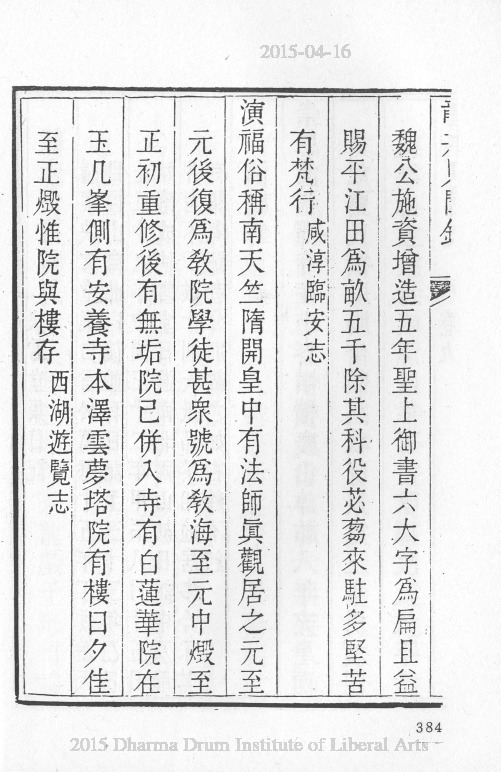 2015-04-16
魏公施資增造五年聖上御書六大字爲扁且益
賜平江田爲畝五千除其科役苾蒭來駐多堅苦
有梵行 咸淳臨安志
演福俗稱南天竺隋開皇中有法師眞觀居之元至
元後復爲教院學徒甚衆號爲教海至元中燬至
正初重修後有無垢院已併入寺有白蓮華院在
玉几峯側有安養寺本澤雲夢塔院有樓曰夕佳
至正燬惟院與樓存 西湖遊覽志
384
2015 Dharma Drum Institute of Liberal Arts